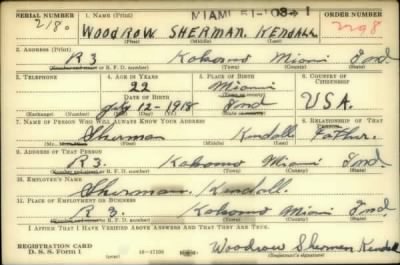 SERIAL NUMBER 1. NAME (Print) MIAMI 51-103-1 ORDER NUMBER
218. WOODROW SHERMAN. KENDALL 2298
(First) (Middle) (Last)
2. ADDRESS (Print)
R 3 Kokomo Miami Ind
(Number and street or R. F. D. number) (Town) (County) (State)
3. TELEPHONE 4. AGE IN YEARS 5. PLACE OF BIRTH 6. COUNTRY OF CITIZENSHIP
22 Miami
DATE OF BIRTH (Town or county)
July-12-1918 Ind U.S.A.
(Exchange) (Number) (Mo.) (Day) (Yr.) (State or country)
7. NAME OF PERSON WHO WILL ALWAYS KNOW YOUR ADDRESS 8. RELATIONSHIP OF THAT PERSON
Sherman Kendall Father.
(First) (Middle) (Last)
9. ADDRESS OF THAT PERSON
R 3. Kokomo Miami Ind
(Number and street or R. F. D. number) (Town) (County) (State)
10. EMPLOYER'S NAME
Sherman. Kendall
11. PLACE OF EMPLOYMENT OR BUSINESS
R 3. Kokomo Miami Ind.
(Number and street or R. F. D. number) (Town) (County) (State)
I AFFIRM THAT I HAVE VERIFIED ABOVE ANSWERS AND THAT THEY ARE TRUE.
REGISTRATION CARD
D. S. S. Form 1 16-17105 Woodrow Sherman Kendall
(Registrant's signature)